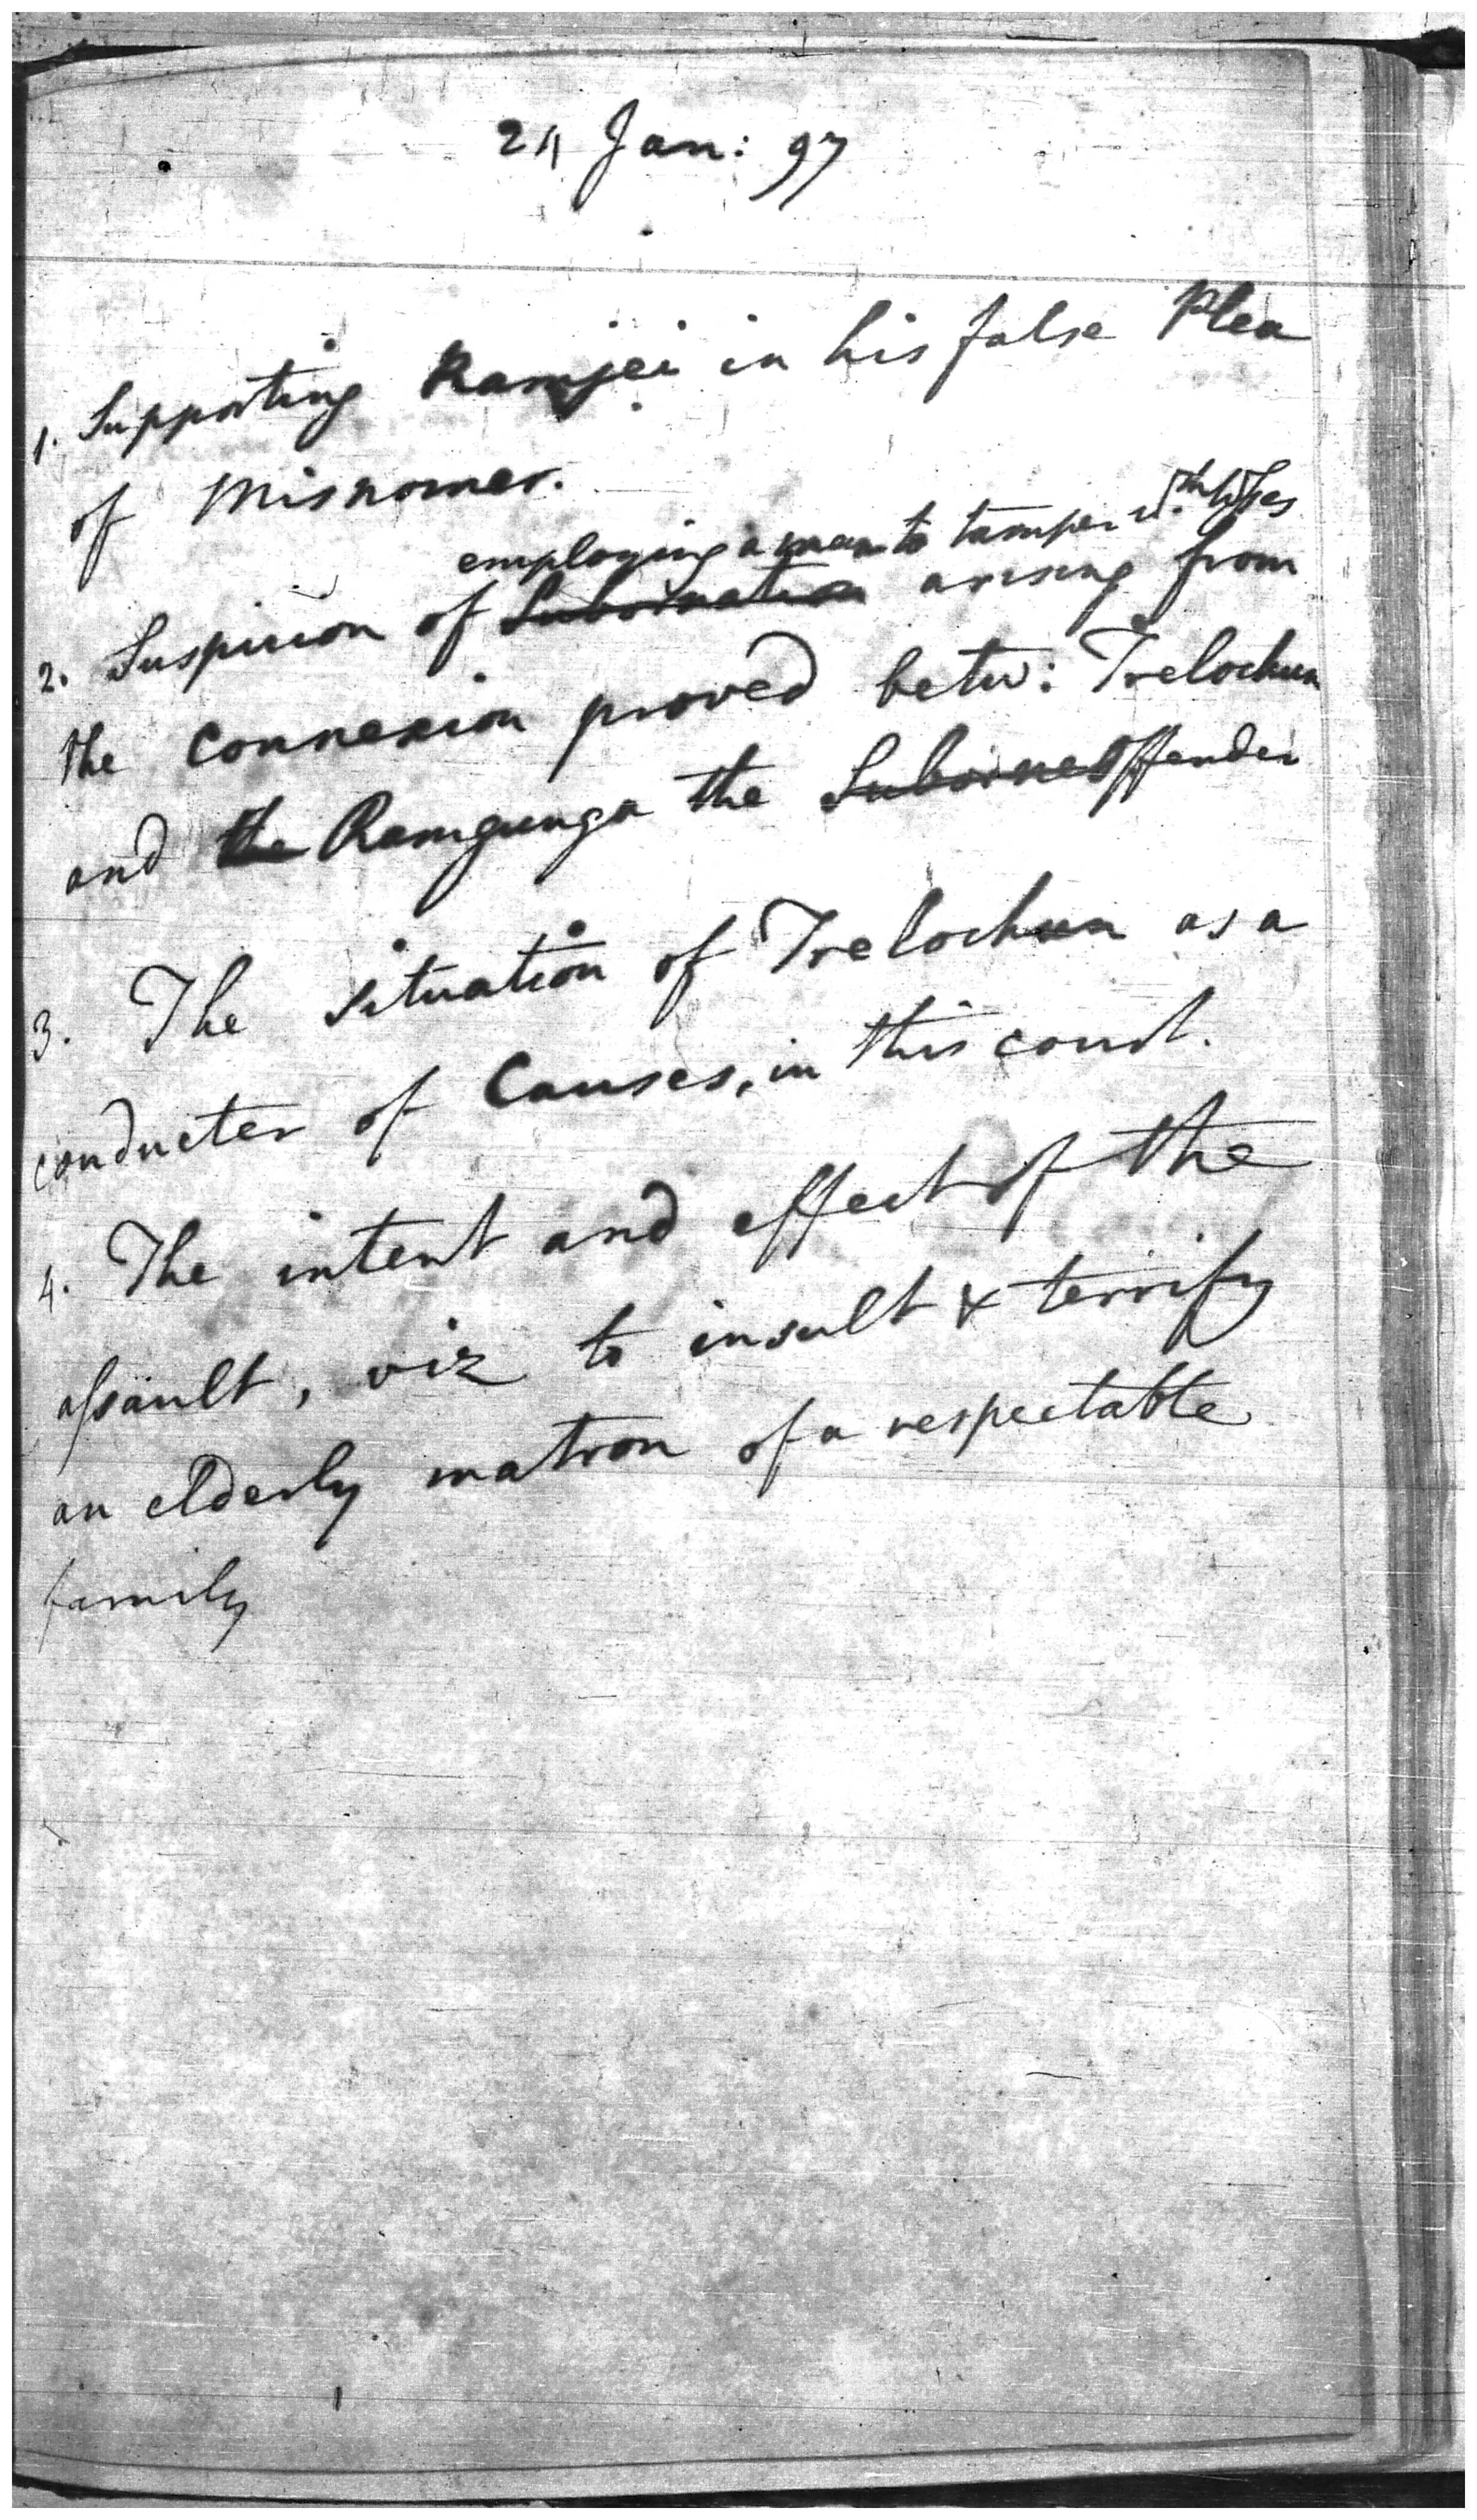 24 Jan: 97
1. Supporting Ramjei in his false Plea
of Misnomer.
employing a man to tamper wth Wses
2. Suspicion of Subornation arising from
the Connexion proved betw: Trelochun
and the Ramgunga the Suborned Offender
3. The situation of Trelochun as a
conducter of Causes, in this court.
4. The intent and effect of the
assault, viz to insult & terrify
an elderly matron of a respectable
family